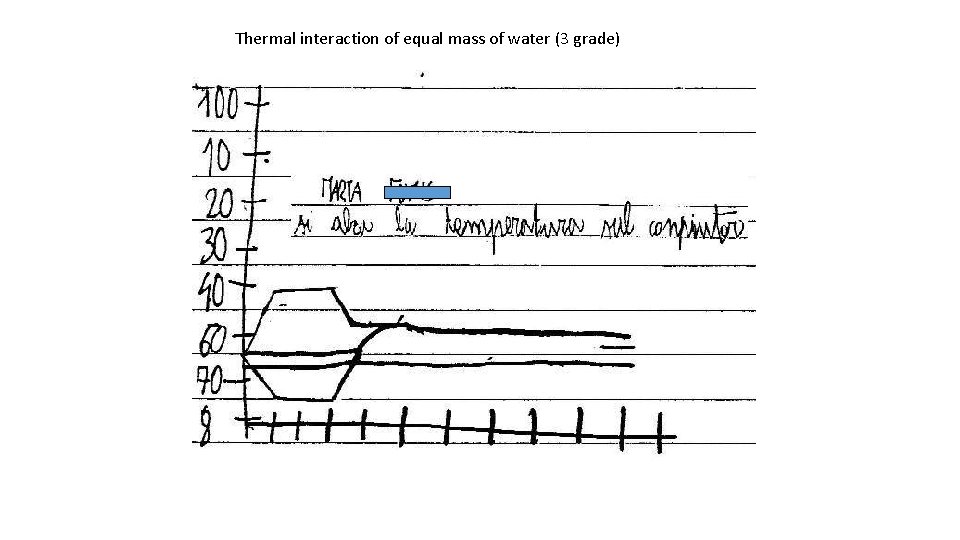 Thermal interaction of equal mass of water (3 grade)
100
10
20
MARTA
si alza la temperatura sul conpiutore
30
40
60
70
8